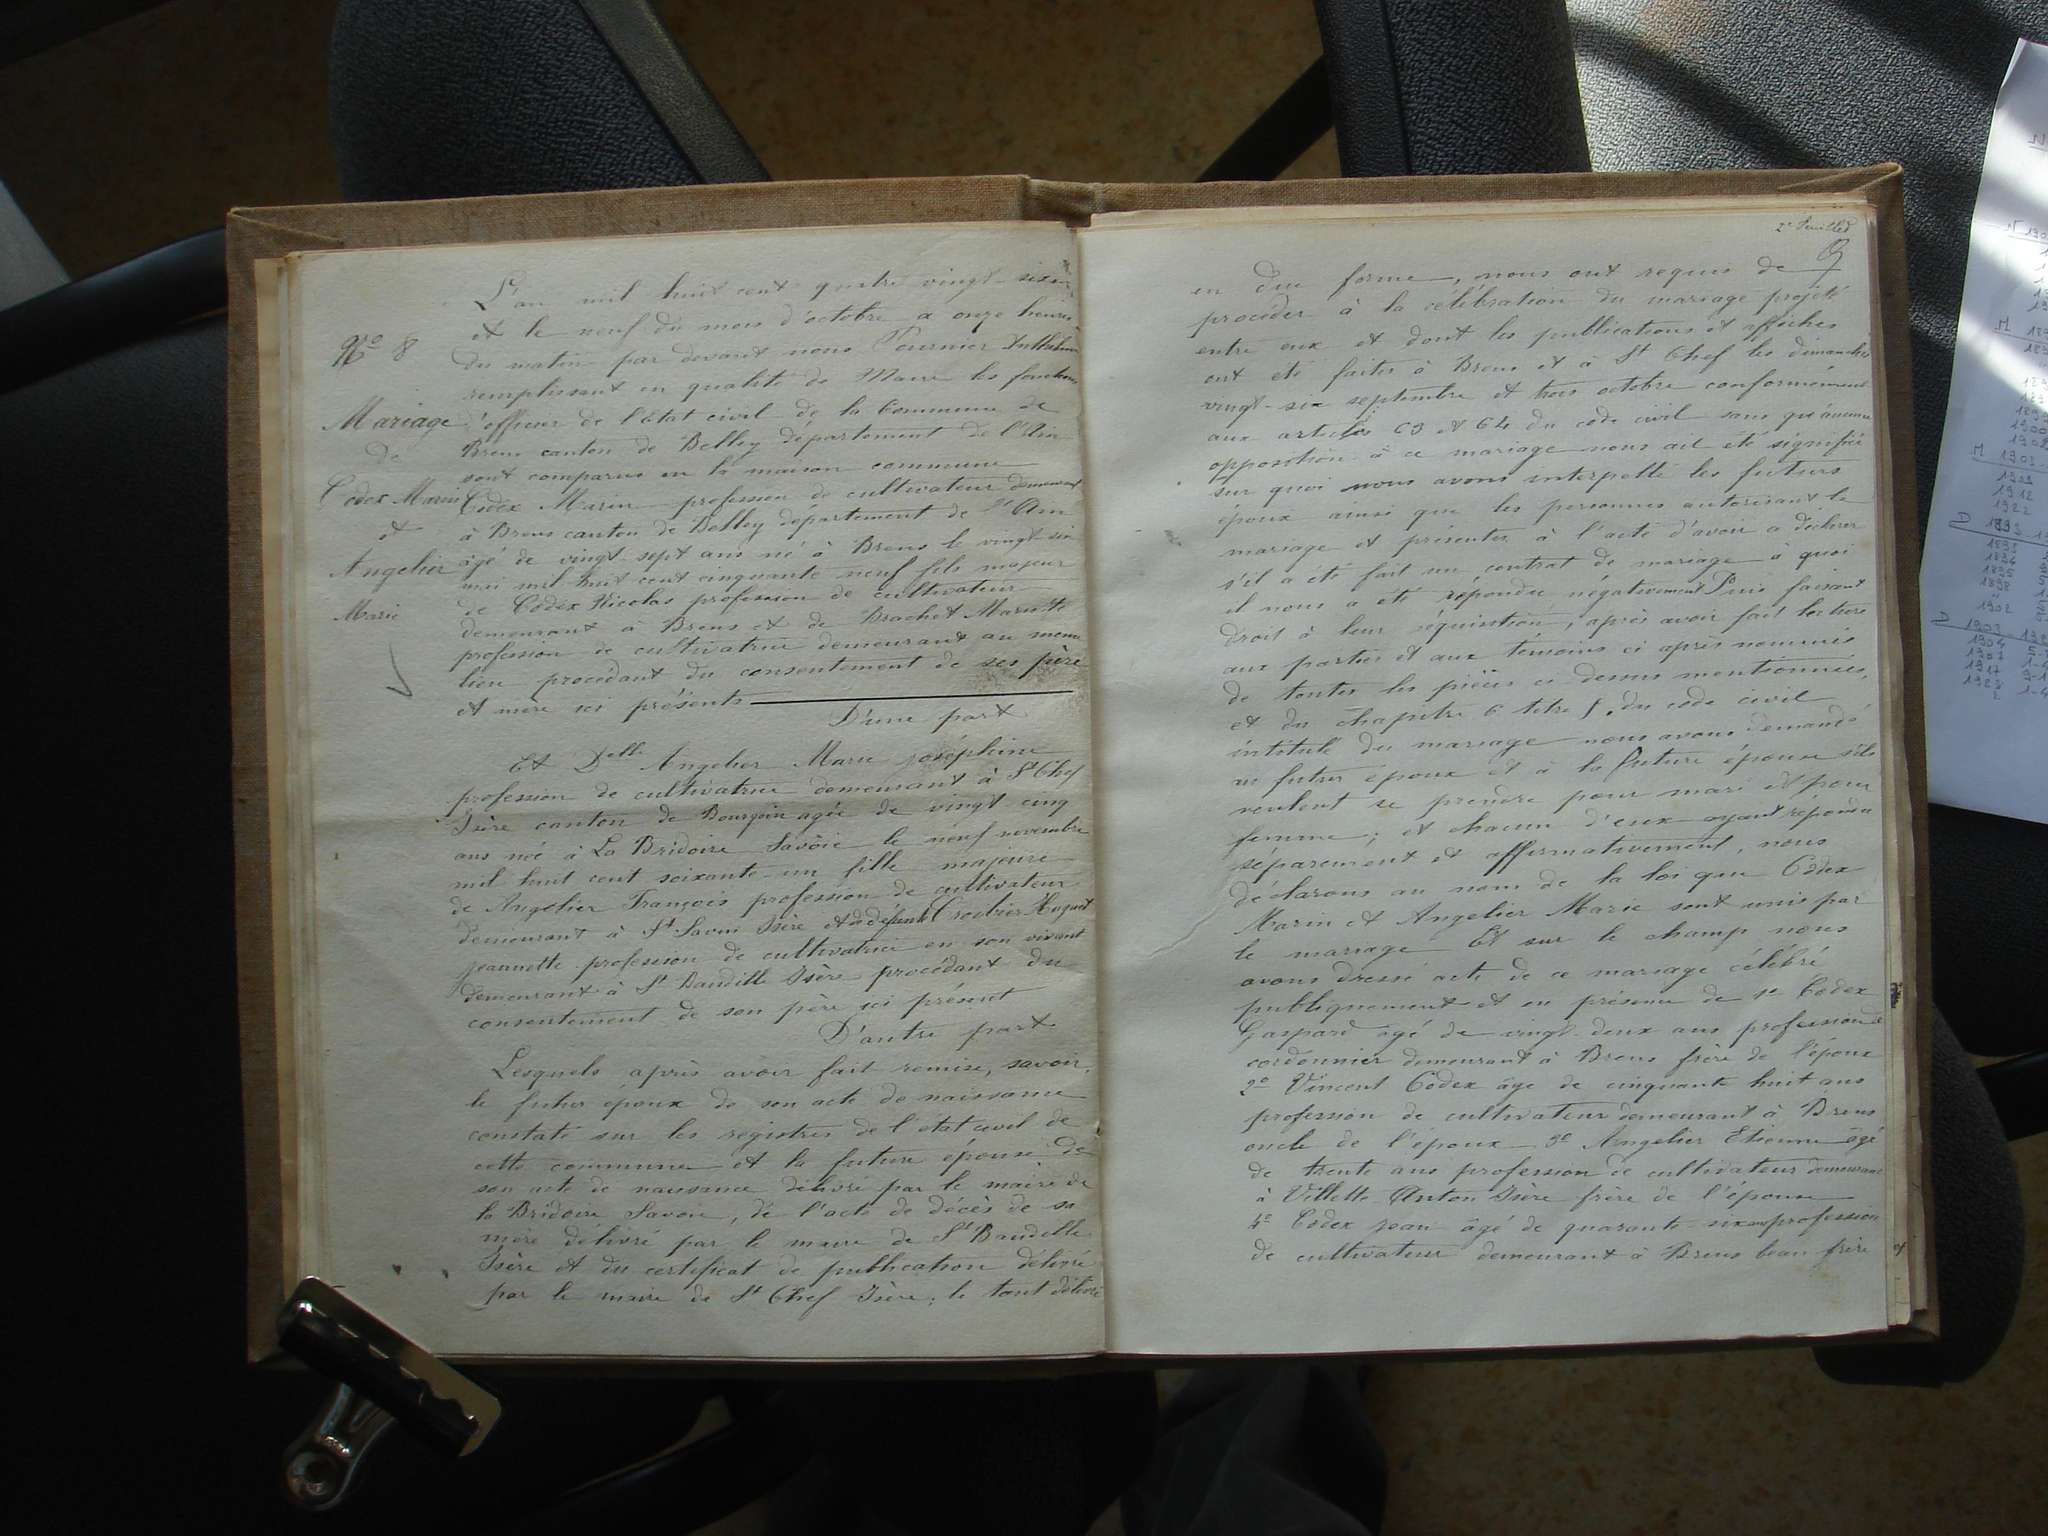 L'an mil huit cent quatre vingt-six
et le neuf du mois d'octobre a onze heures
du matin par devant nous Fournier Anthelme
remplissant en qualité de Maire les fonctions
d'officier de l'Etat civil de la Commune de
Brens canton de Belley département de l'Ain
sont comparus en la maison commune
Codex Marin profession de cultivateur demeurant
à Brens canton de Belley département de l'Ain
âgé de vingt-sept ans né à Brens le vingt-six
mai mil huit cent cinquante neuf fils majeur
de Codex Nicolas profession de cultivateur
demeurant à Brens et de Brochet Mariette
profession de cultivatrice demeurant au meme
lieu procédant du consentement de ses père
et mère ici présents
D'une part
Et Delle Angelier Marie joséphine
profession de cultivatrice demeurant à St Chef
Isère canton de Bourgoin agée de vingt cinq
ans née à La Bridoire Savoie le neuf novembre
mil huit cent soixante-un fille majeure
de Angelier François profession de cultivateur
demeurant à St Savin Isère et de défunte Huguet
jeannette profession de cultivatrice en son vivant
demeurant à St Baudille Isère procédant du
consentement de son père ici présent
D'autre part
Lesquels après avoir fait remise, savoir,
le futur époux de son acte de naissance
constaté sur les registres de l'état civil de
cette commune et la future épouse de
son acte de naissance délivré par le maire de
la Bridoire Savoie, de l'acte de décès de sa
mère délivré par le maire de St Baudille
Isère et du certificat de publication délivré
par le maire de St Chef Isère; le tout délivré
No 8
Mariage
de
Codex Marin
et
Angelier
Marie
2e Feuillet
en due forme, nous ont requis de
procéder à la célébration du mariage projeté
entre eux et dont les publications et affiches
ont été faites à Brens et à St Chef les dimanches
vingt-six septembre et trois octobre conformément
aux articles 63 et 64 du code civil sans qu'aucune
opposition à ce mariage nous ait été signifiée
sur quoi nous avons interpellé les futurs
époux ainsi que les personnes autorisant le
mariage et présentes à l'acte d'avoir a déclarer
s'il a été fait un contrat de mariage à quoi
il nous a été répondu négativement Puis faisant
droit à leur réquisition, après avoir fait lecture
aux parties et aux témoins ci après nommés
de toutes les pièces ci dessus mentionnées,
et du chapitre 6 titre 5 du code civil
intitulé du mariage nous avons demandé
au futur époux et à la future épouse s'ils
veulent se prendre pour mari et pour
femme; et chacun d'eux ayant répondu
séparement et affirmativement, nous
déclarons au nom de la loi que Codex
Marin et Angelier Marie sont unis par
le mariage Et sur le champ nous
avons dressé acte de ce mariage célébré
publiquement et en présence de 1e Codex
Gaspard âgé de vingt-deux ans profession de
cordonnier demeurant à Brens frère de l'époux
2o Vincent Codex âge de cinquante huit ans
profession de cultivateur demeurant à Brens
oncle de l'époux 3o Angelier Etienne âgé
de trente ans profession de cultivateur demeurant
à Villette-Anton Isère frère de l'épouse
4o Codex jean âgé de quarante-six ans profession
de cultivateur demeurant à Brens beau frère